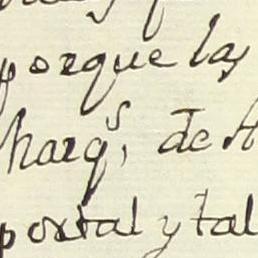 porque las
harqs, de A
portal y tal